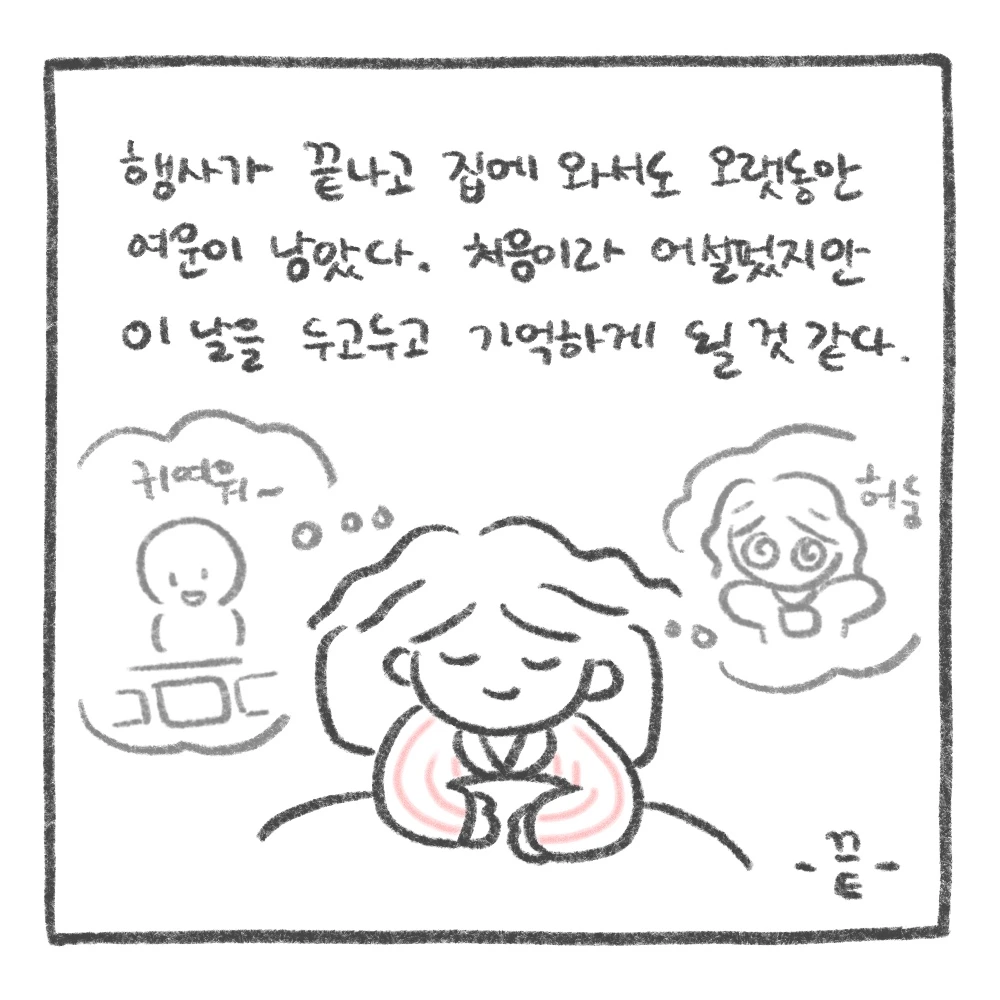 행사가 끝나고 집에 와서도 오랫동안
여운이 낭았다. 처음이라 어설펐지만
이 날을 두고두고 기억하게 될 것 같다.
귀여워~
허둥
-끝-